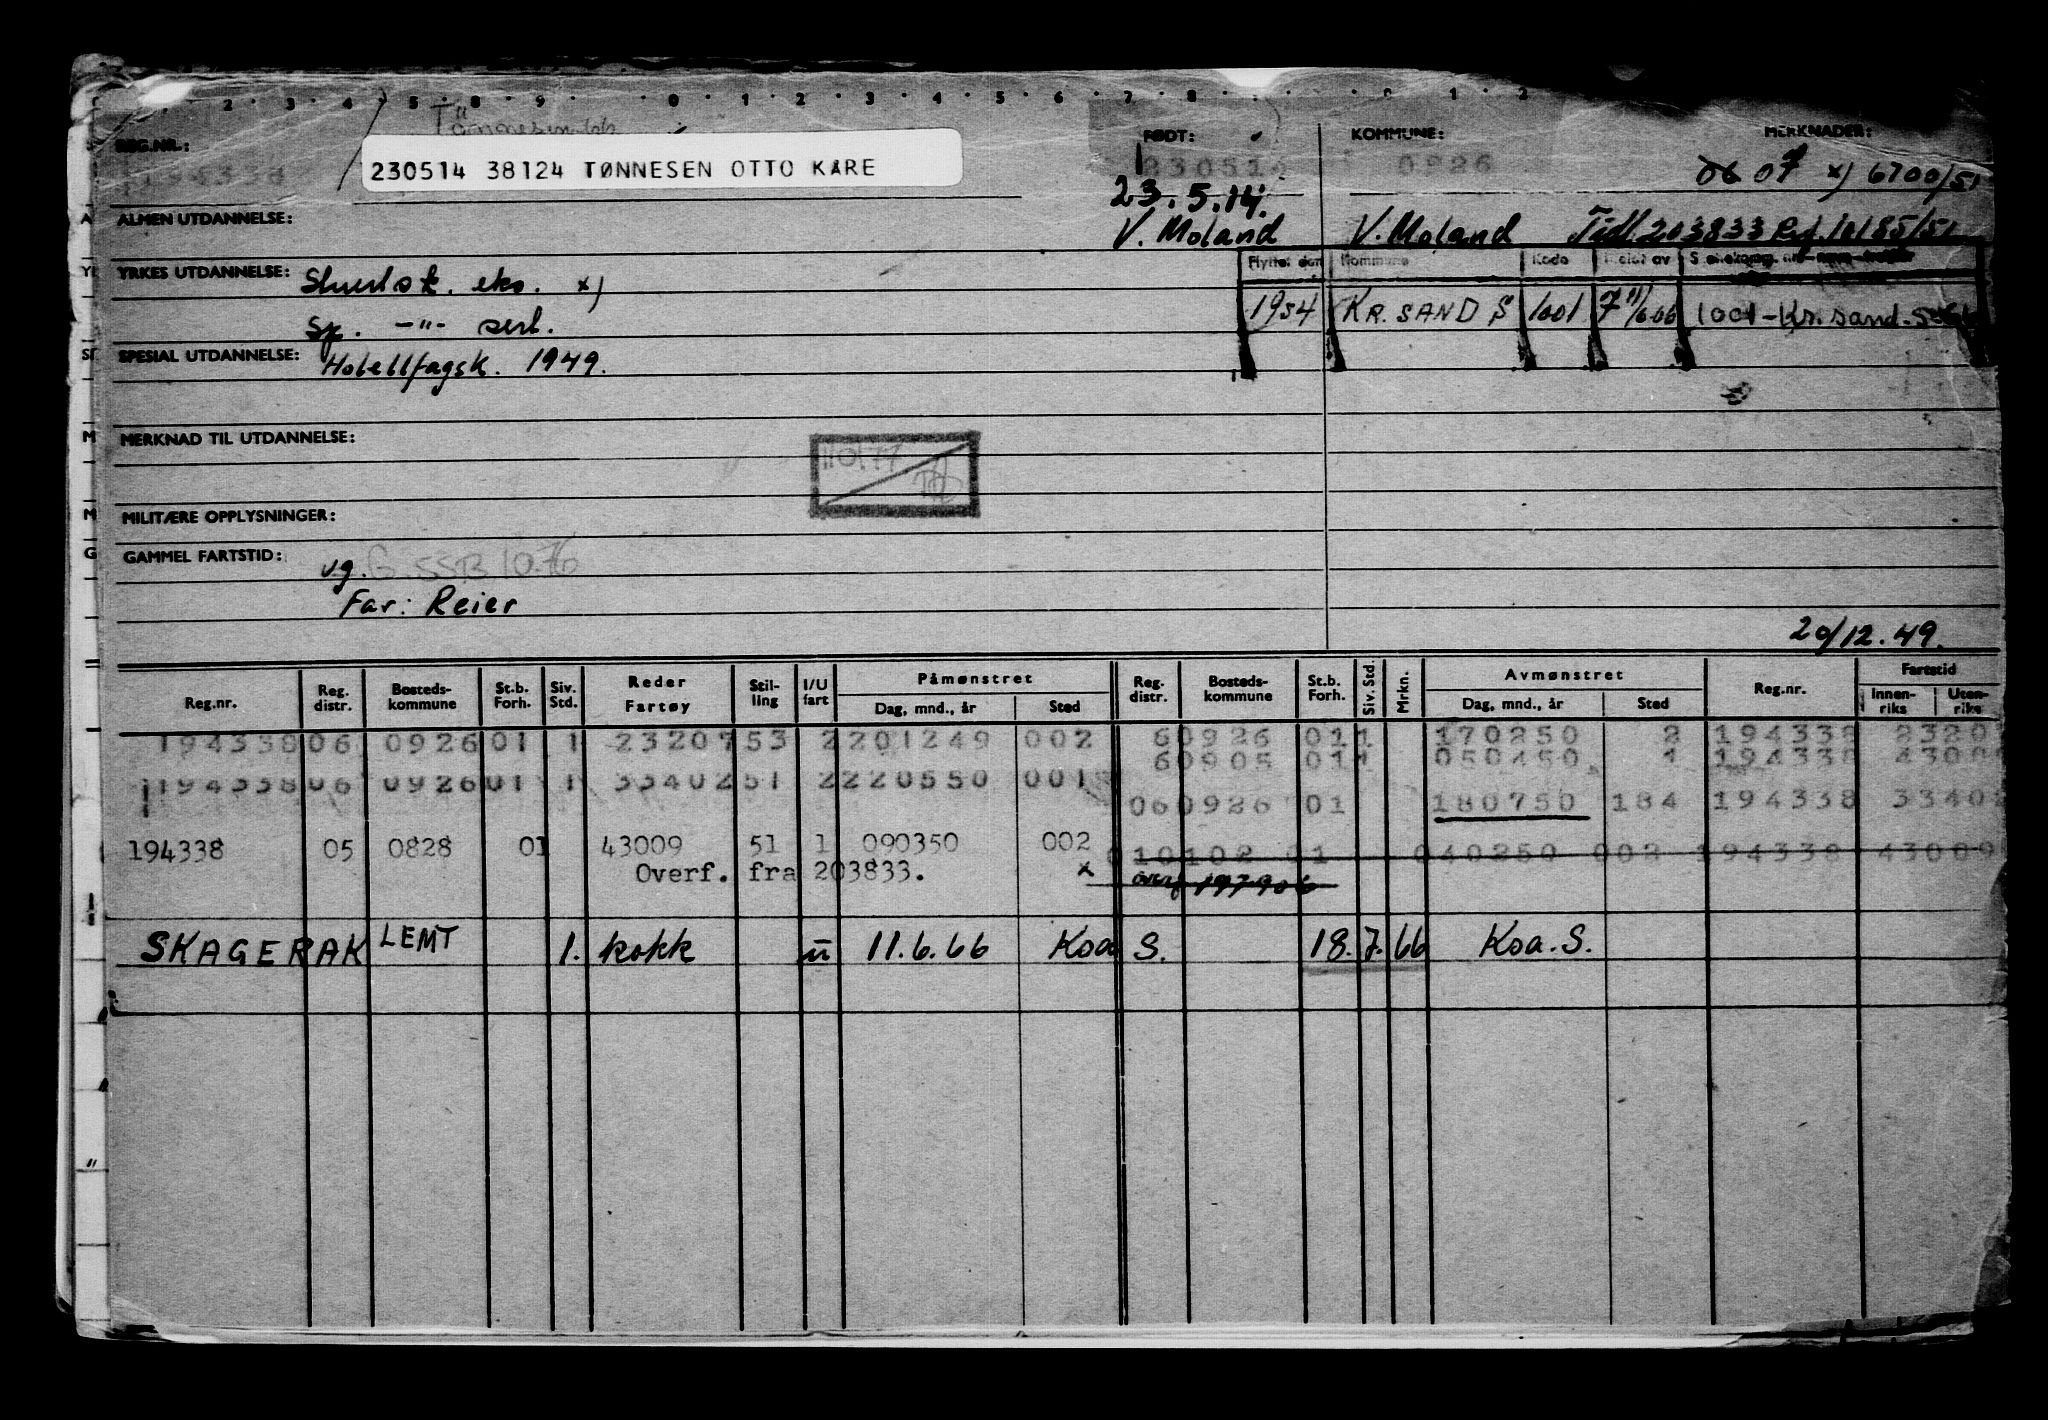 2 · 3 · 4 5 8 9 0 1 2 3 4 5 6 7 8 1 2
REG.NR.: FØDT: KOMMUNE: MERKNADER:
194338 230514 38124 TØNNESEN OTTO KÅRE 230514 0926 06 07 x) 6700/51
23.5.14.
ALMEN UTDANNELSE: V. Moland V. Moland Tidl. 203833 Ref. 10185/51
Flyttet den Kommune Kode Meldt av
YRKES UTDANNELSE: eks. x)
1954 KR.SAND S 1001 1001-Kr.sand.
Sp. -"- sert.
SPESIAL UTDANNELSE: Hotellfagsk. 1949.
MERKNAD TIL UTDANNELSE:
MILITÆRE OPPLYSNINGER:
GAMMEL FARTSTID: v.g. G. SSB 10.76
Far: Reier
20/12.49.
Reg.nr. Reg. distr. Bosteds-kommune St.b. Forh. Siv. Std. Reder Fartøy Stil-ling I/U fart Påmønstret Dag, mnd., år Sted Reg. distr. Bosteds-kommune St.b. Forh. Siv. Std. Mrkn. Avmønstret Dag, mnd., år Sted Reg.nr. Fartstid Innen-riks Uten-riks
194338 06 0926 01 1 23207 53 2 201249 002 6 0926 01 1 170250 2 194338 2320
6 0905 01 1 050450 1 194338
194338 06 0926 01 1 33402 51 2 220550 001
06 0926 01 180750 184 194338 33402
194338 05 0828 01 43009 51 1 090350 002 010102 01 040250 002 194338 43009
Overf. fra 203833. x overf 197906
SKAGERAK LEMT 1. kokk u 11.6.66 Ksa S. 18.7.66 Ksa. S.